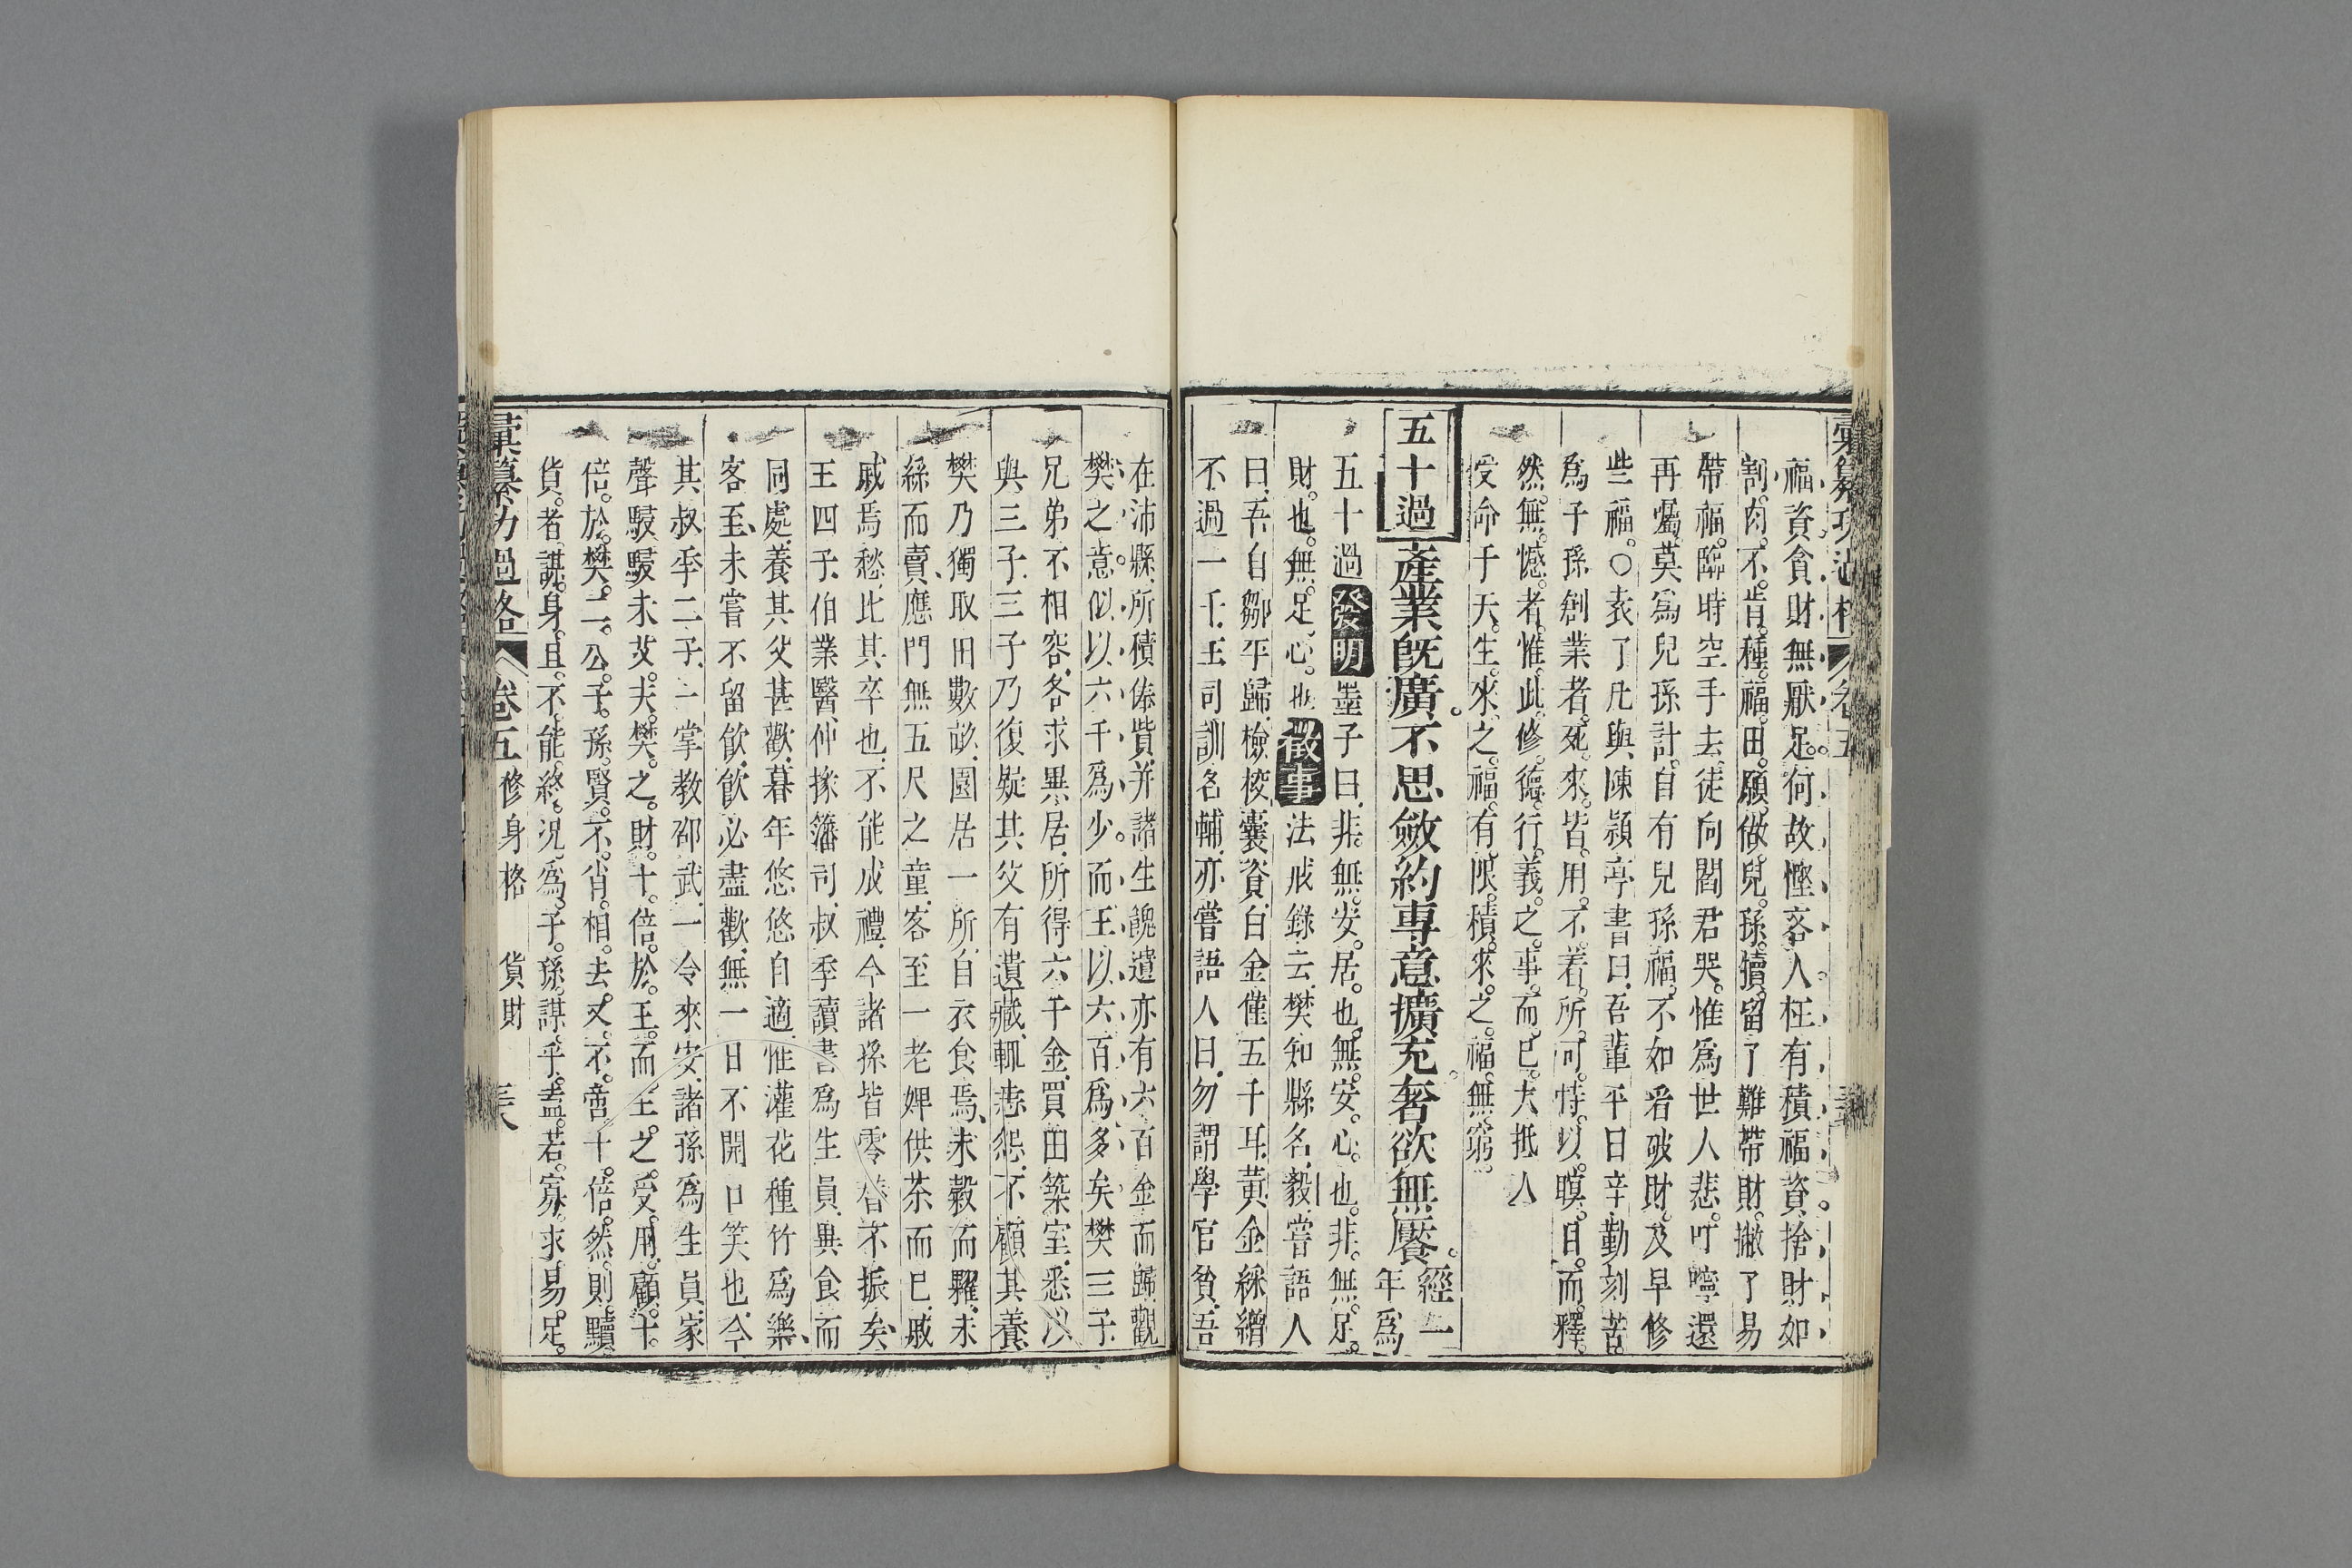 彙纂功過格 卷五
福資貪財無厭足何故慳吝人枉有積福資捨財如
割肉不肯種福田願做兒孫犢留了難帶財撇了易
帶福臨時空手去徒向閻君哭惟爲世人悲叮嚀還
再囑莫爲兒孫計自有兒孫福不如看破財及早修
些福○袁了凡與陳潁亭書曰吾輩平日辛勤刻苦
爲子孫創業者死來皆用不着所可恃以瞑目而釋
然無憾者惟此修德行義之事而已大抵人
受命于天生來之福有限積來之福無窮
五十過產業旣廣不思斂約專意擴充奢欲無饜經一年爲
五十過發明墨子曰非無安居也無安心也非無足
財也無足心也徵事法戒錄云樊知縣名毅嘗語人
曰吾自鄒平歸檢校囊資白金僅五千耳黃金綵繒
不過一千王司訓名輔亦嘗語人曰勿謂學官貧吾
在沛縣所積俸貲并諸生餽遺亦有六百金而歸觀
樊之意似以六千爲少而王以六百爲多矣樊三子
兄弟不相容各求異居所得六千金買田築室悉以
與三子三子乃復疑其父有遺藏輒恚怨不顧其養
樊乃獨取田數畝園居一所自衣食焉未穀而糶未
絲而賣應門無五尺之童客至一老婢供茶而已戚
戚焉愁比其卒也不能成禮今諸孫皆零替不振矣
王四子伯業醫仲掾籓司叔季讀書爲生員異食而
同處養其父甚歡暮年悠悠自適惟灌花種竹爲樂
客至未嘗不留飮飮必盡歡無一日不開口笑也今
其叔季二子一掌教邵武一令來安諸孫爲生員家
聲駸駸未艾夫樊之財十倍於王而王之受用顧十
倍於樊二公子孫賢不肖相去又不啻十倍然則黷
貨者謀身且不能終況爲子孫謀乎盍若寡求易足
彙纂功過格 卷五 修身格 貨財 三六